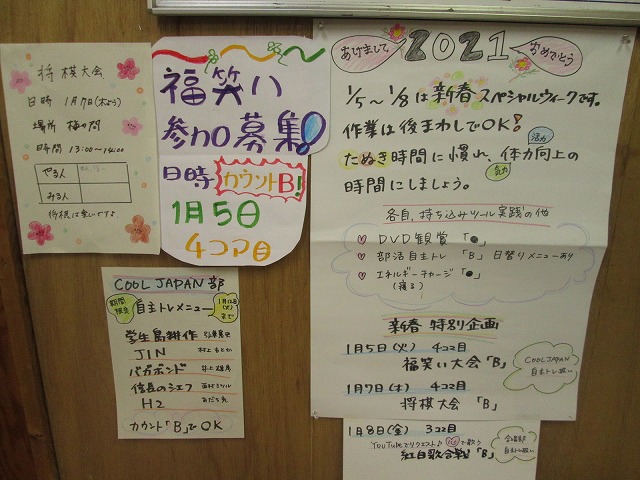 将棋大会
日時 1月7日(木よう)
場所 梅の間
時間 13:00〜14:00
やる人
みる人
福笑い
参加募集!
日時 カウントB!
1月5日
4コマ目
COOL JAPAN部
期間限定 自主トレメニュー 1月12日(火)まで
学生島耕作 弘兼憲史
JIN 村上もとか
バガボンド 井上雄彦
信長のシェフ 西村ミツル
H2 あだち充
カウント「B」でOK
あけまして 2021 おめでとう
1/5〜1/8は新春スペシャルウィークです。
作業は後まわしでOK!
たぬき時間に慣れ、体力向上の
活力
気力
時間にしましょう。
各自、持ち込みツール実践の他
♡ DVD観賞 「●」
♡ 部活自主トレ 「B」 日替りメニューあり
♡ エネルギーチャージ 「●」
(寝る)
新春 特別企画
1月5日(火) 4コマ目
福笑い大会「B」
1月7日(木) 4コマ目
将棋大会 「B」
COOL JAPAN
自主トレ扱い
1月8日(金) 3コマ目
YouTubeでリクエスト♪ で歌う
紅白歌合戦「B」
自主トレ扱い